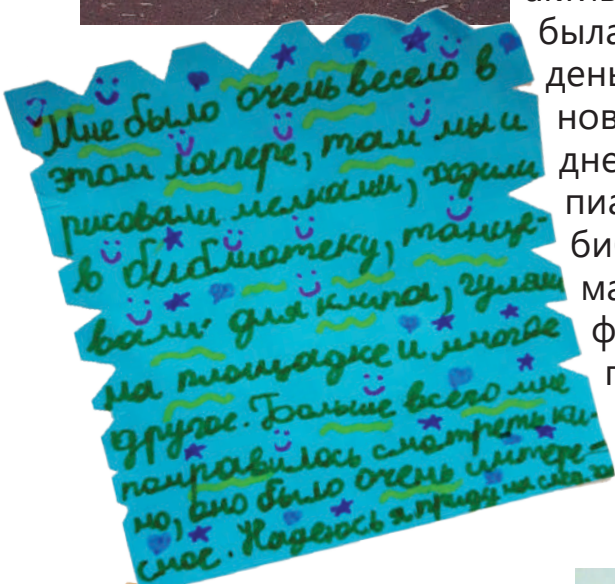 Мне было очень весело в
этом лагере, там мы и
рисовали мелками, ходили
в библиотеку, танце-
вали для клипа, гуляли
на площадке и многое
другое. Больше всего мне
понравилось смотреть ки-
но, оно было очень интере-
сное. Надеюсь я приду на
была
день
нов
дне
пиа
би
ма
ф